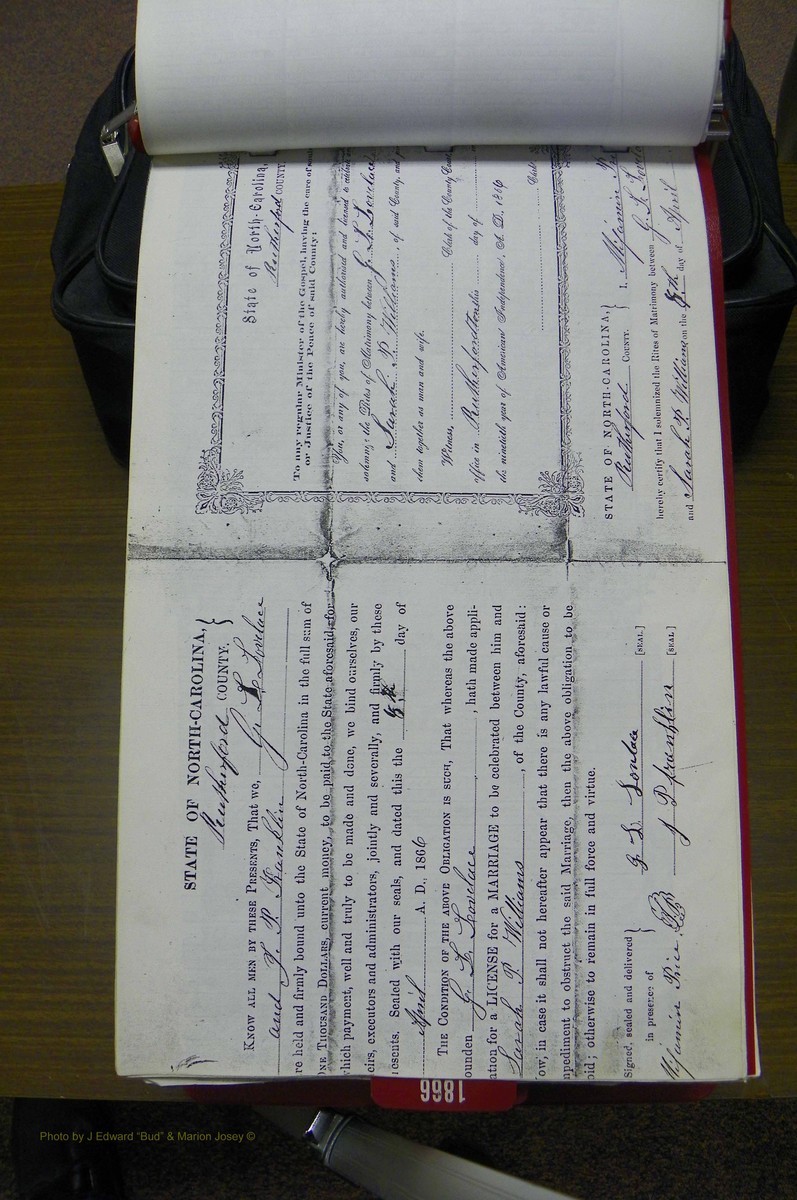 STATE OF NORTH-CAROLINA,
Rutherford COUNTY.
KNOW ALL MEN BY THESE PRESENTS, That we, G. L. Lovelace
and J. P. Franklin
re held and firmly bound unto the State of North-Carolina in the full sum of
ONE THOUSAND DOLLARS, current money, to be paid to the State aforesaid, for
which payment, well and truly to be made and done, we bind ourselves, our
eirs, executors and administrators, jointly and severally, and firmly by these
resents. Sealed with our seals, and dated this the day of
April A. D., 1866
THE CONDITION OF THE ABOVE OBLIGATION IS SUCH, That whereas the above
ounden G. L. Lovelace, hath made appli-
ation for a LICENSE for a MARRIAGE to be celebrated between him and
Sarah P Williams, of the County, aforesaid:
ow, in case it shall not hereafter appear that there is any lawful cause or
mpediment to obstruct the said Marriage, then the above obligation to be
oid; otherwise to remain in full force and virtue.
Signed, sealed and delivered
in presence of
Price
G L Lovelace [SEAL]
J P Franklin [SEAL]
State of North-Carolina,
Rutherford COUNTY
To any regular Minister of the Gospel, having the care of
or Justice of the Peace of said County:
You, or any of you, are hereby authorized and licensed to celebrate
solemnize the Rites of Matrimony between G. L. Lovelace
and Sarah P. Williams of said County, and
them together as man and wife.
Witness, Clerk of the County Court
office in Rutherfordton this day of
the ninetieth year of American Independence, A. D., 1866
Clerk
STATE OF NORTH-CAROLINA,
Rutherford COUNTY.
I,
hereby certify that I solemnized the Rites of Matrimony between G. L.
and Sarah P Williams on the day of April
1866
Photo by J Edward "Bud" & Marion Josey ©